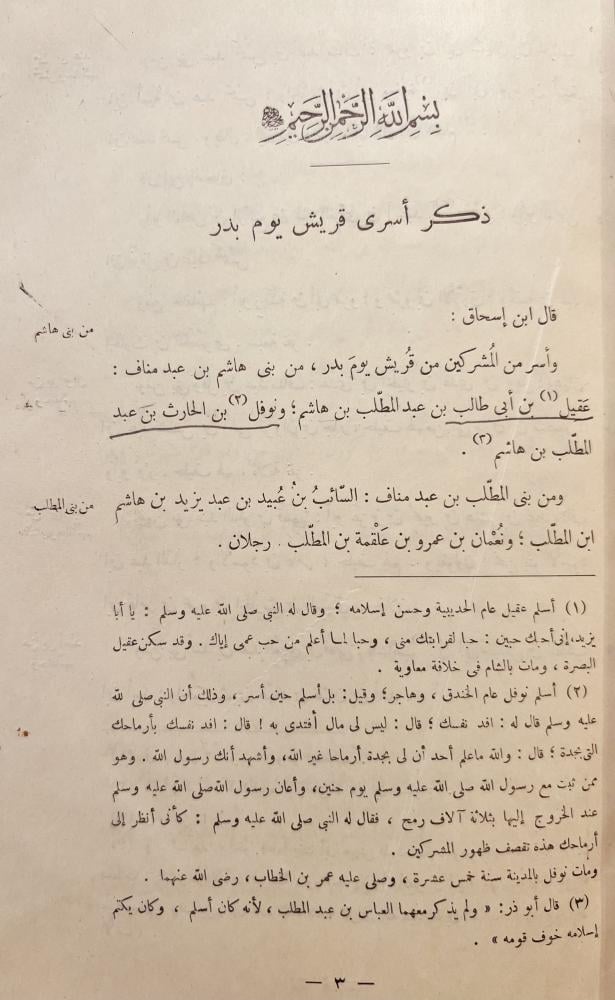 بِسْمِ اللَّهِ الرَّحْمَٰنِ الرَّحِيمِ
ذكر أسرى قريش يوم بدر
قال ابن إسحاق :
من بنى هاشم
وأسر من المُشركين من قُريش يومَ بدر ، من بنى هاشم بن عبد مناف :
عَقيل(١) بن أبى طالب بن عبد المطّلب بن هاشم؛ ونوفل(٢) بن الحارث بنَ عبد
المطّلب بن هاشم(٣) .
من بنى المطلب
ومن بنى المطّلب بن عبد مناف : السّائبُ بنُ عُبيد بن عبد يزيد بن هاشم
ابن المطّلب ؛ ونُعْمان بن عمرو بن عَلْقمة بن المطّلب . رجلان .
(١) أسلم عقيل عام الحديبية وحسن إسلامه ؛ وقال له النبى صلى الله عليه وسلم : يا أبا
يزيد، إنى أحبك حبين : حبا لقرابتك منى ، وحبا لما أعلم من حب عمى إياك . وقد سكن عقيل
البصرة ، ومات بالشام فى خلافة معاوية .
(٢) أسلم نوفل عام الخندق ، وهاجر؛ وقيل: بل أسلم حين أسر ، وذلك أن النبى صلى لله
عليه وسلم قال له : افد نفسك ؛ قال : ليس لى مال أفتدى به ! قال : افد نفسك بأرماحك
التى بجدة ؛ قال : والله ماعلم أحد أن لى بجدة أرماحا غير الله، وأشهد أنك رسول الله . وهو
ممن ثبت مع رسول الله صلى الله عليه وسلم يوم حنين، وأعان رسول الله صلى الله عليه وسلم
عند الخروج إليها بثلاثة آلاف رمح ، فقال له النبى صلى الله عليه وسلم : كأنى أنظر إلى
أرماحك هذه تقصف ظهور المشركين .
ومات نوفل بالمدينة سنة خمس عشرة ، وصلى عليه عمر بن الخطاب ، رضى الله عنهما .
(٣) قال أبو ذر: « ولم يذكر معهما العباس بن عبد المطلب ، لأنه كان أسلم ، وكان يكتم
إسلامه خوف قومه » .
— ٣ —